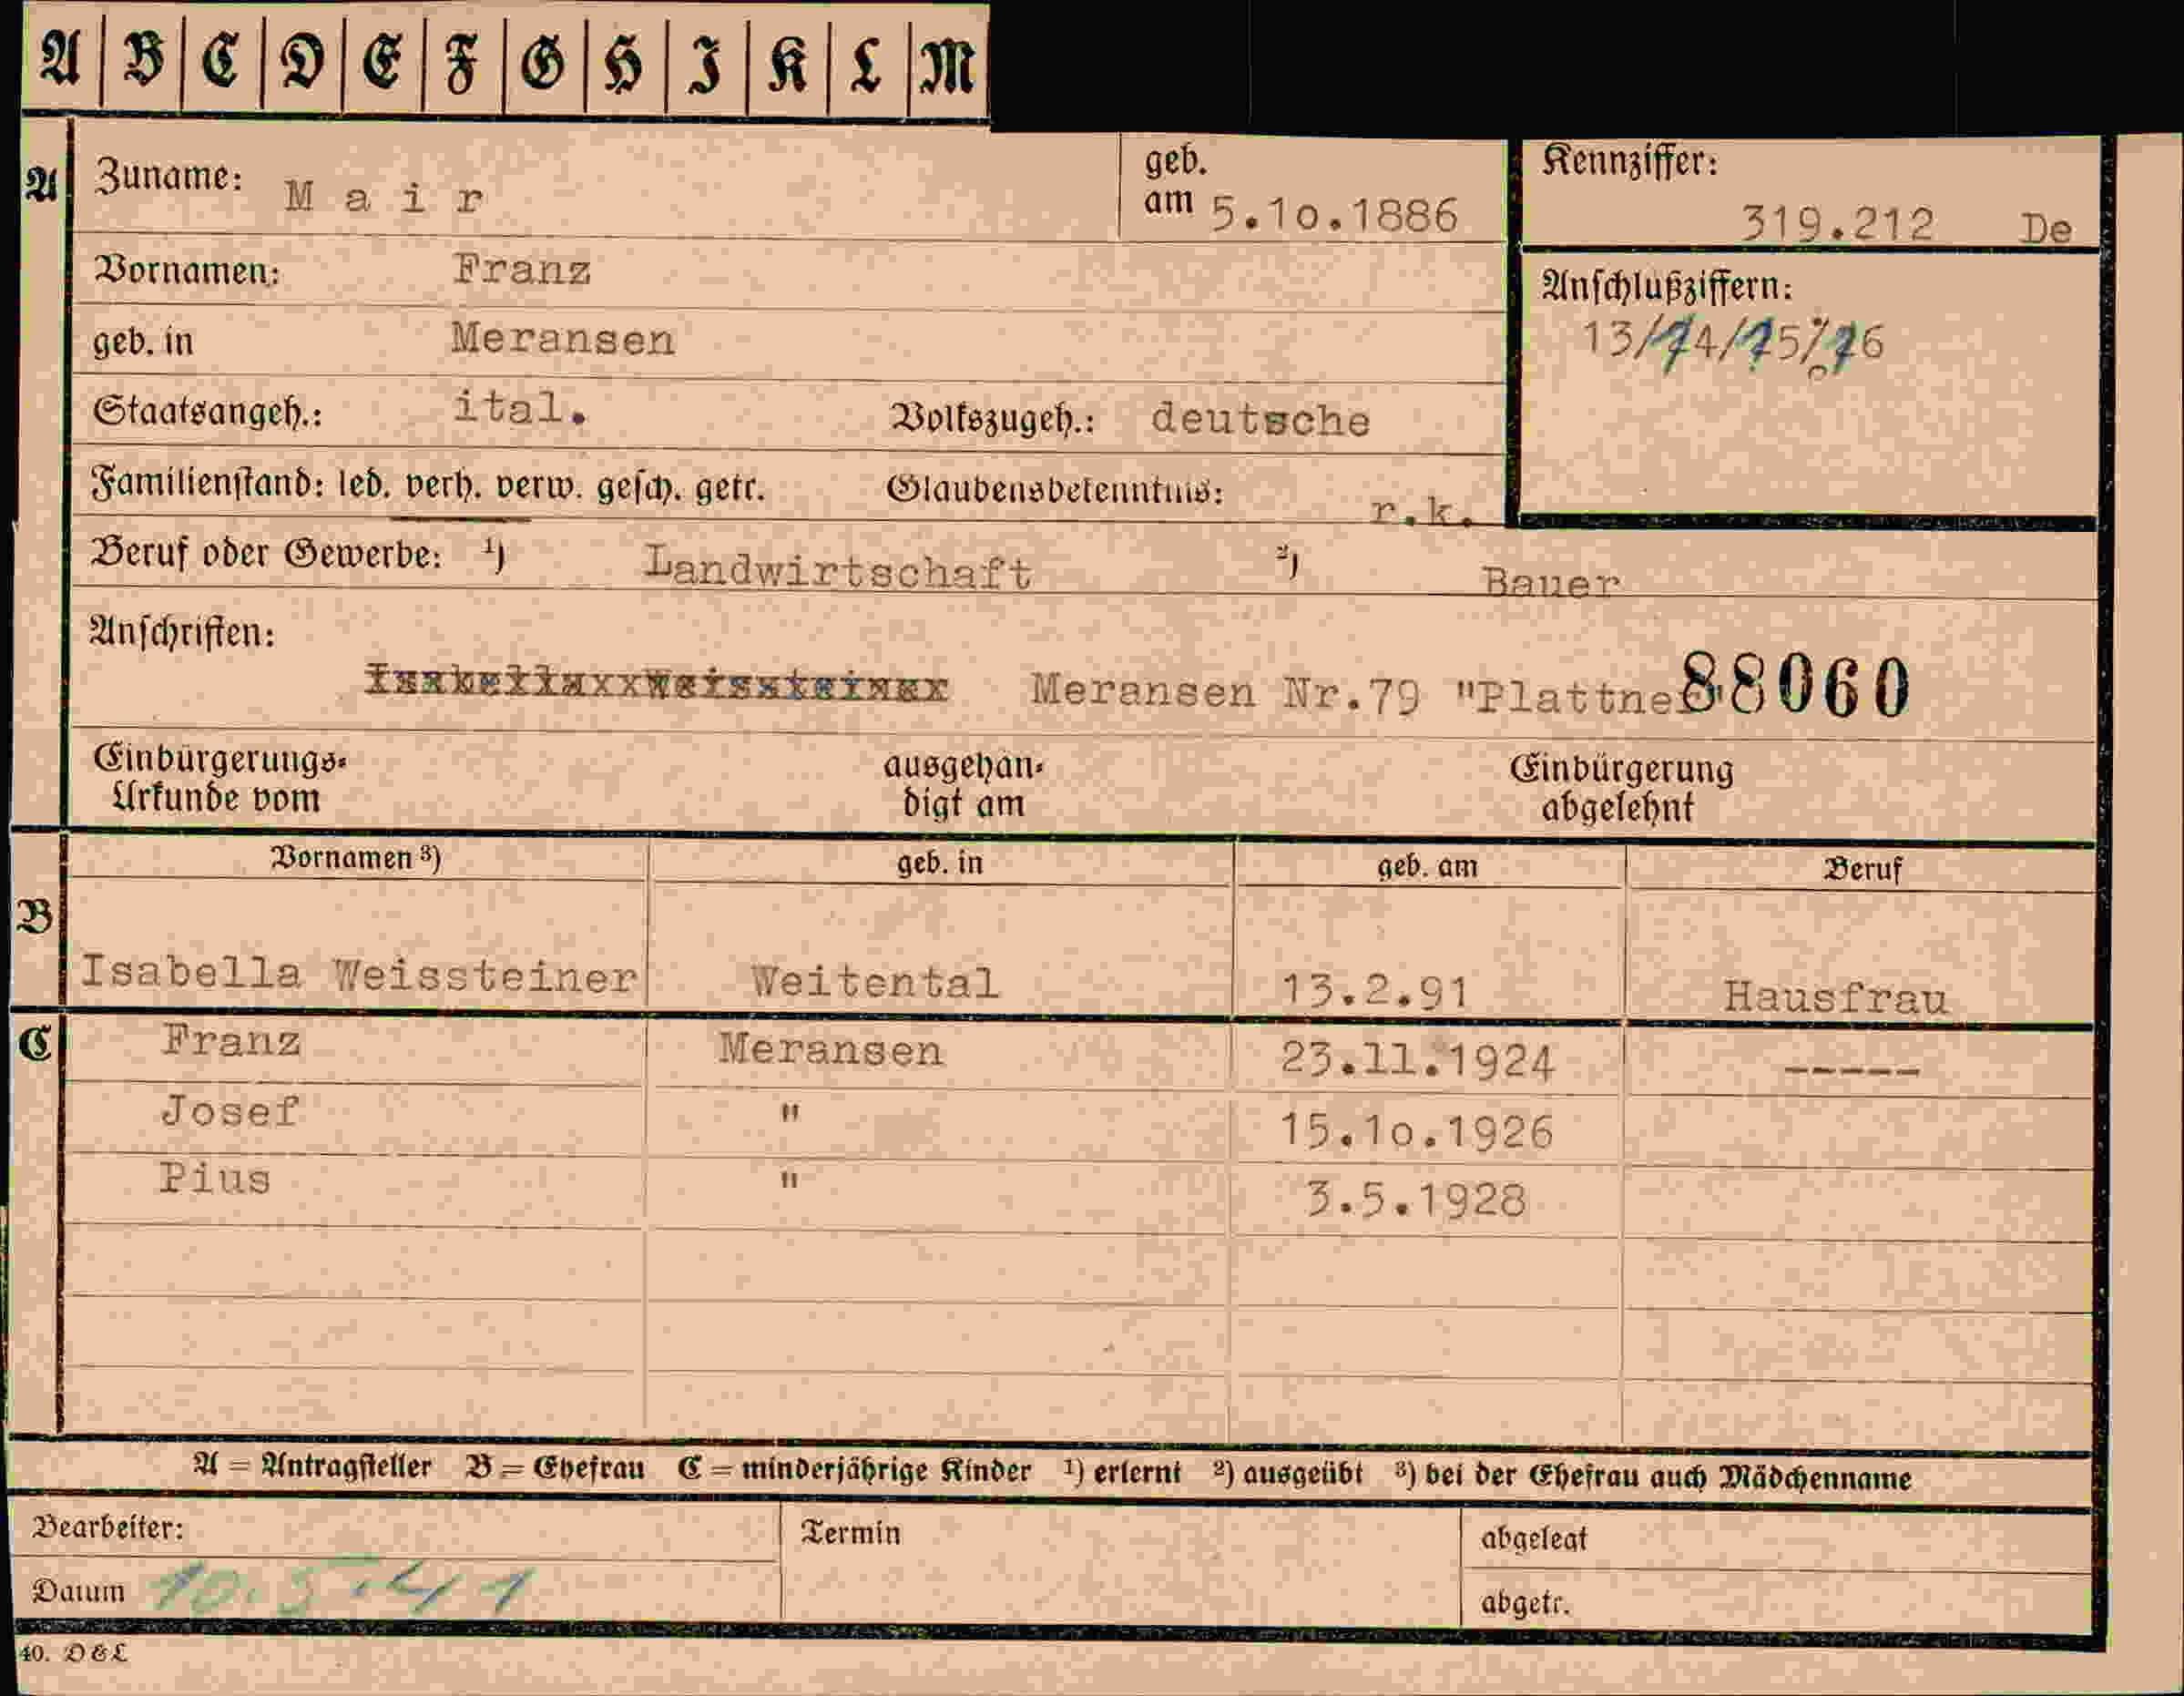 A | B | C | D | E | F | G | H | I | K | L | M
A Zuname: M a i r geb. am 5.10.1886 Kennziffer: 319.212 De
Vornamen: Franz
Anschlußziffern:
geb. in Meransen
Staatsangeh.: ital. Volkszugeh.: deutsche
Familienstand: led. verh. verw. gesch. getr. Glaubensbekenntnis: r.k.
Beruf oder Gewerbe: ¹) Landwirtschaft ²) Bauer
Anschriften:
Meransen Nr.79 "Plattner" 88060
Einbürgerungs-Urkunde vom ausgehändigt am Einbürgerung abgelehnt
Vornamen ³) geb. in geb. am Beruf
B Isabella Weissteiner Weitental 13.2.91 Hausfrau
C Franz Meransen 23.11.1924 -----
Josef " 15.10.1926
Pius " 3.5.1928
A = Antragsteller B = Ehefrau C = minderjährige Kinder ¹) erlernt ²) ausgeübt ³) bei der Ehefrau auch Mädchenname
Bearbeiter: Termin abgelegt
Datum 10.5.41 abgetr.
40. D & L